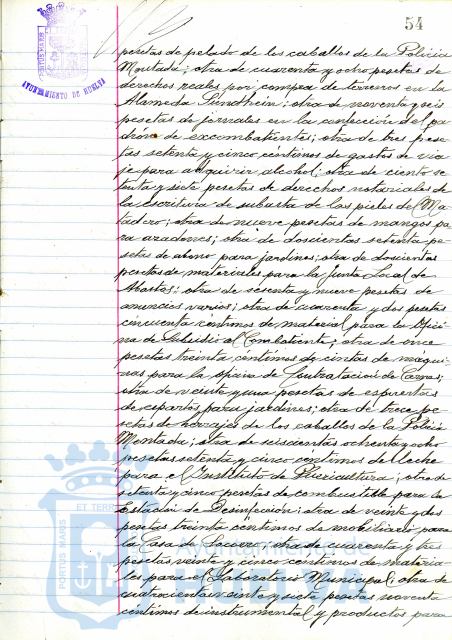 54
AYUNTAMIENTO DE HUELVA
pesetas de pelado de los caballos de la Policia
Montada; otra de cuarenta y ocho pesetas de
derechos reales por compra de terrenos en la
Alameda Sundheim; otra de noventa y seis
pesetas de jornales en la confección del pa-
drón de excombatientes; otra de tres pese-
tas setenta y cinco céntimos de gastos de via-
je para adquirir alcohol; otra de ciento se-
tenta y siete pesetas de derechos notariales de
la escritura de subasta de las pieles del Ma-
tadero; otra de nueve pesetas de mangos pa-
ra azadones; otra de doscientas setenta pe-
setas de abono para jardines; otra de doscientas
pesetas de materiales para la Junta Local de
Abastos; otra de sesenta y nueve pesetas de
anuncios varios; otra de cuarenta y dos pesetas
cincuenta céntimos de material para la Ofici-
na de Subsidio al Combatiente; otra de once
pesetas treinta céntimos de cintas de máqui-
nas para la oficina de Contratación de Carnes;
otra de veinte y una pesetas de espuertas
de esparto para jardines; otra de trece pe-
setas de herraje de los caballos de la Policia
Montada; otra de seiscientas ochenta y ocho
pesetas setenta y cinco céntimos de leche
para el Instituto de Puericultura; otra de
setenta y cinco pesetas de combustible para la
Estación de Desinfección; otra de veinte y dos
pesetas treinta céntimos de mobiliario para
la Casa de Socorro; otra de cuarenta y tres
pesetas veinte y cinco céntimos de materia-
les para el Laboratorio Municipal; otra de
cuatrocientas veinte y siete pesetas noventa
céntimos de instrumental y productos para
PORTUS MARIS
ET TERRAE
Ayuntamiento de
HUELVA